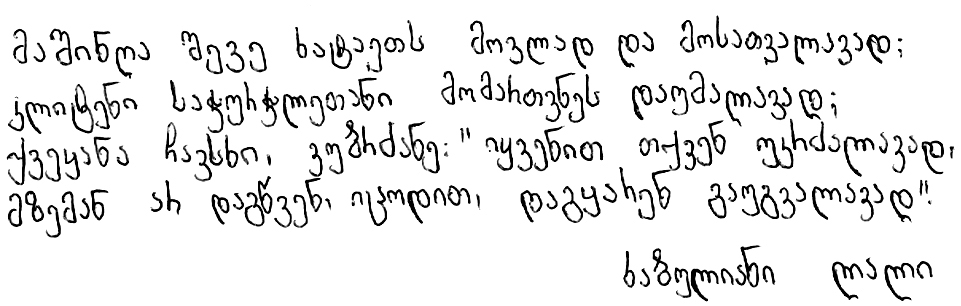 მაშინღა შევე ხატაეთს მოვლად და მოსათვალავად;
კლიტენი საჭურჭლეთანი მომართვნეს დაუმალავად;
ქვეყანა ჩავსხი, ვუბრძანე: "იყვენით თქვენ უკრძალავად,
მზემან არ დაგწვენ, იცოდით, დაგყარენ გაუგვალავად".
ხაზულიანი ლალი